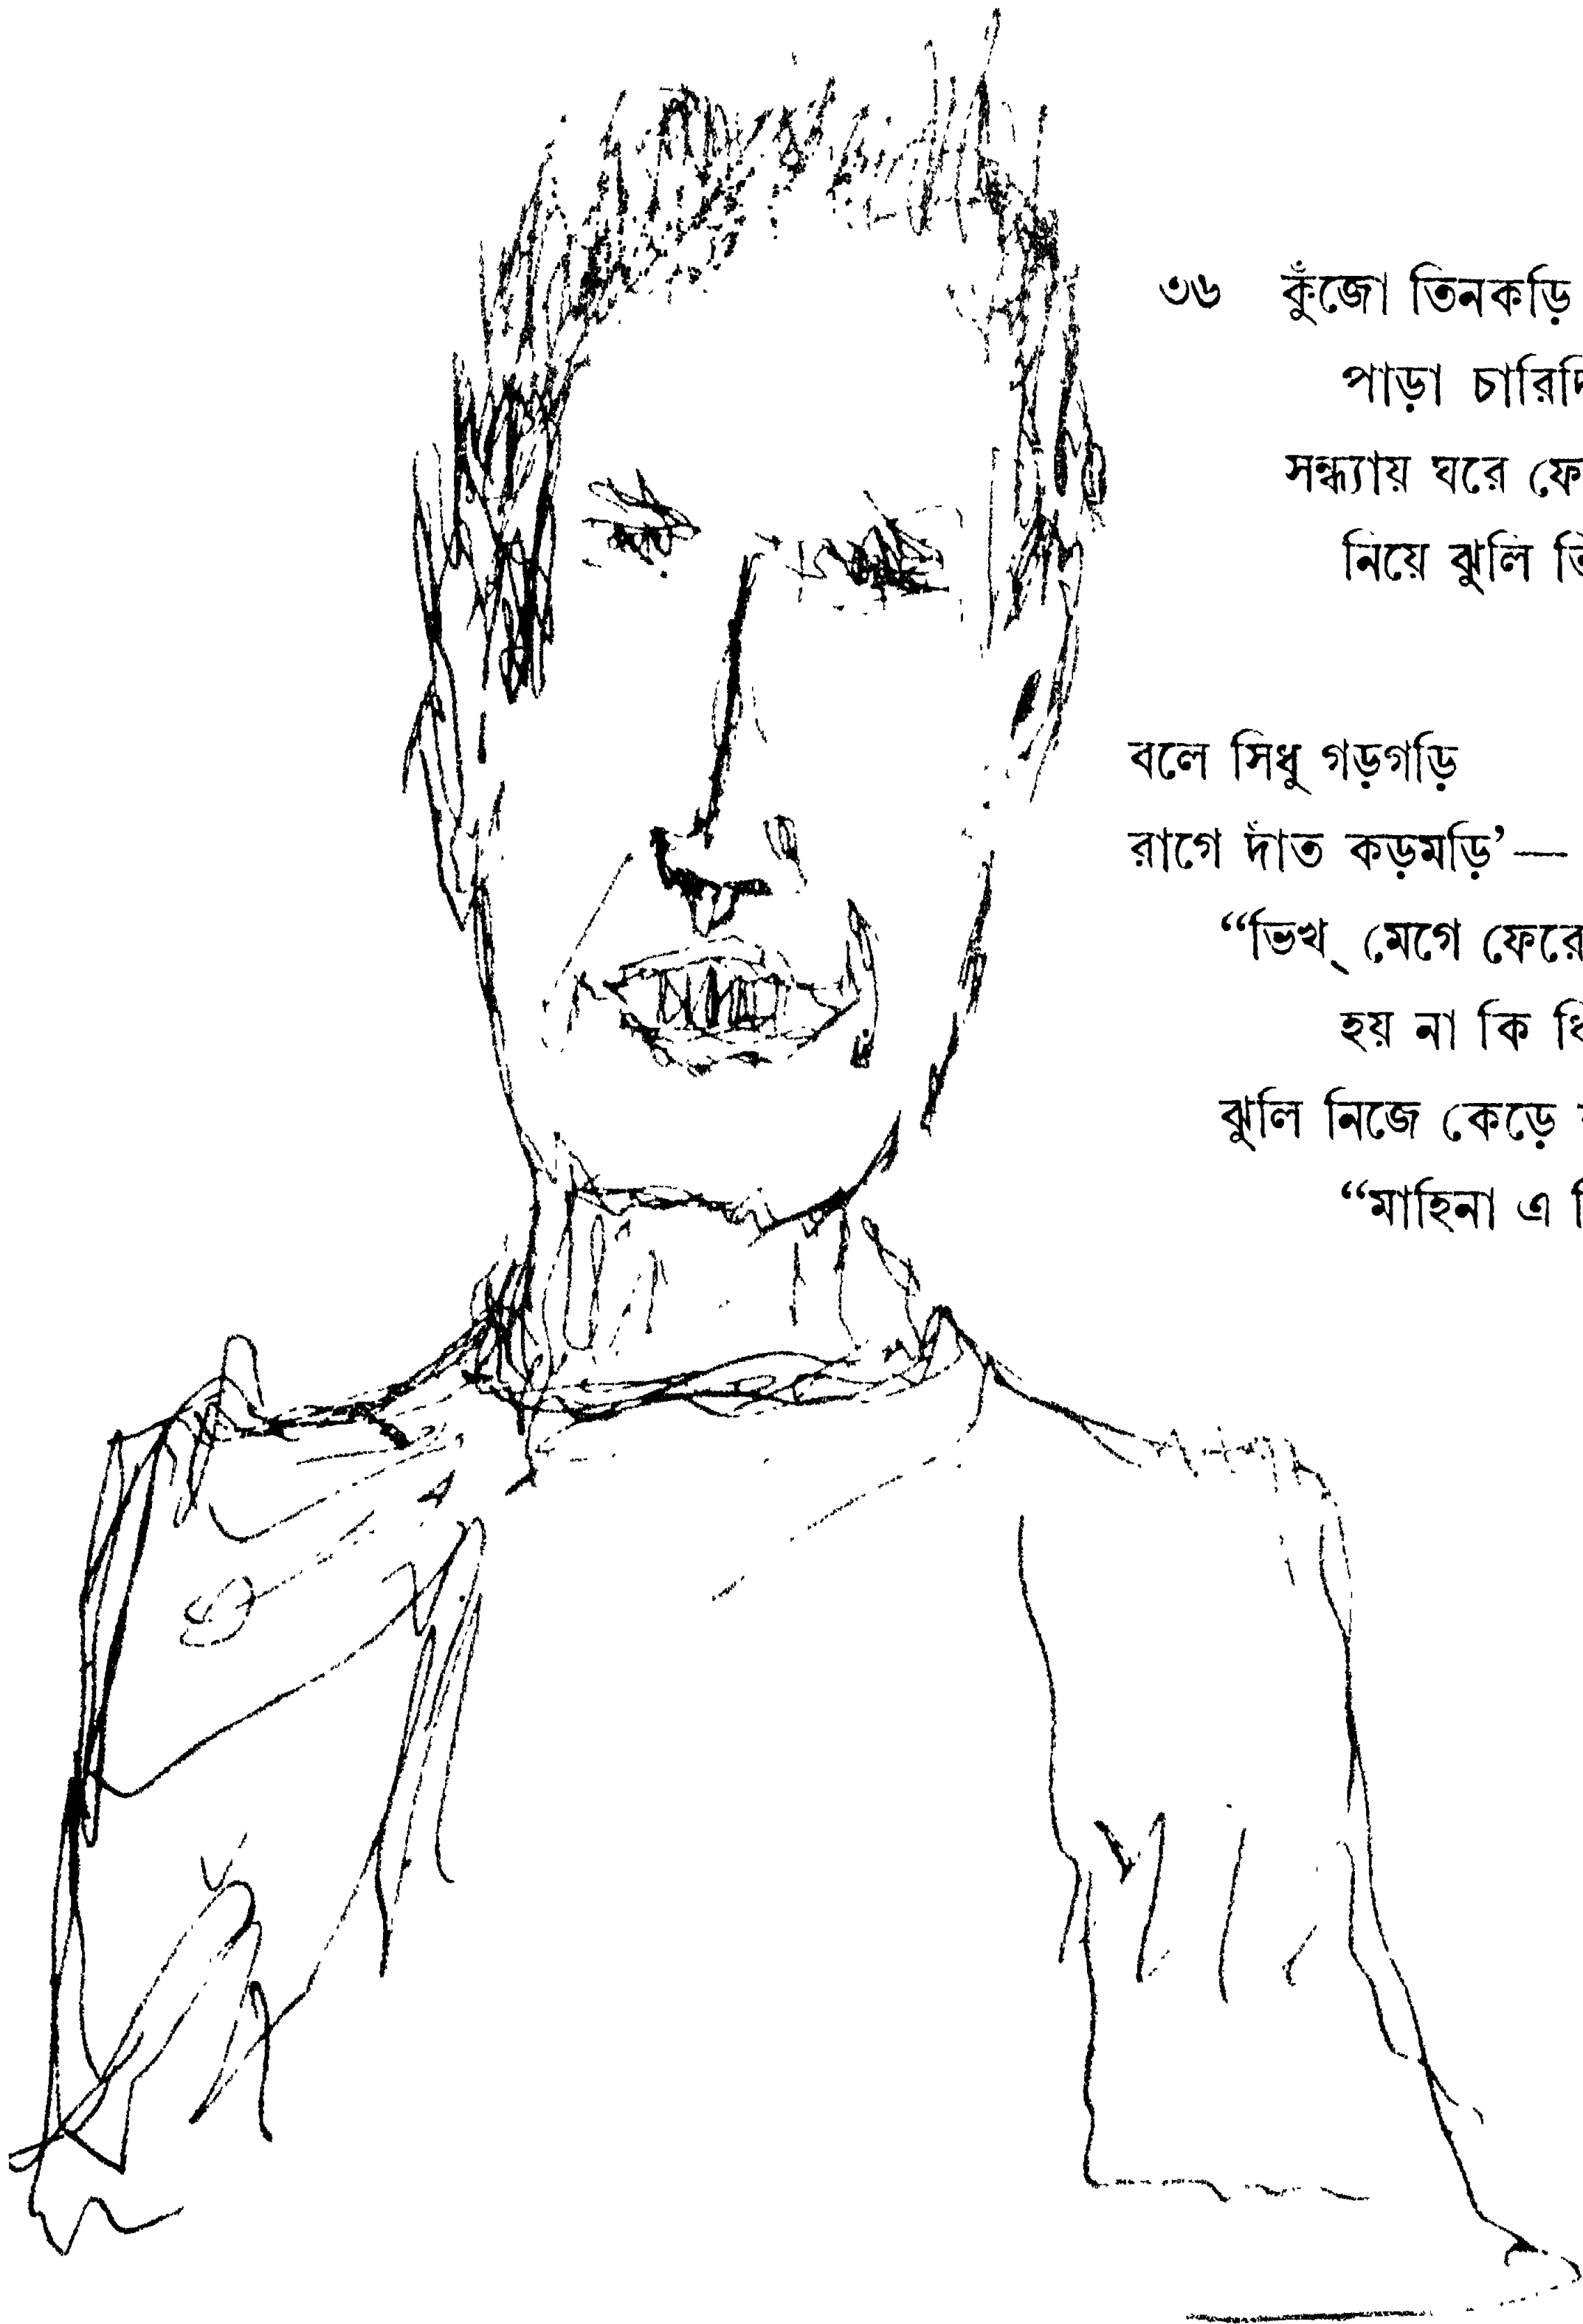 ৩৬ কুঁজো তিনকড়ি
পাড়া
সন্ধ্যায় ঘরে
নিয়ে ঝুলি
বলে সিধু গড়গড়ি
রাগে দাঁত কড়মড়ি’—
“ভিখ্ মেগে ফেরে
হয় না কি
ঝুলি নিজে কেড়ে
“মাহিনা এ